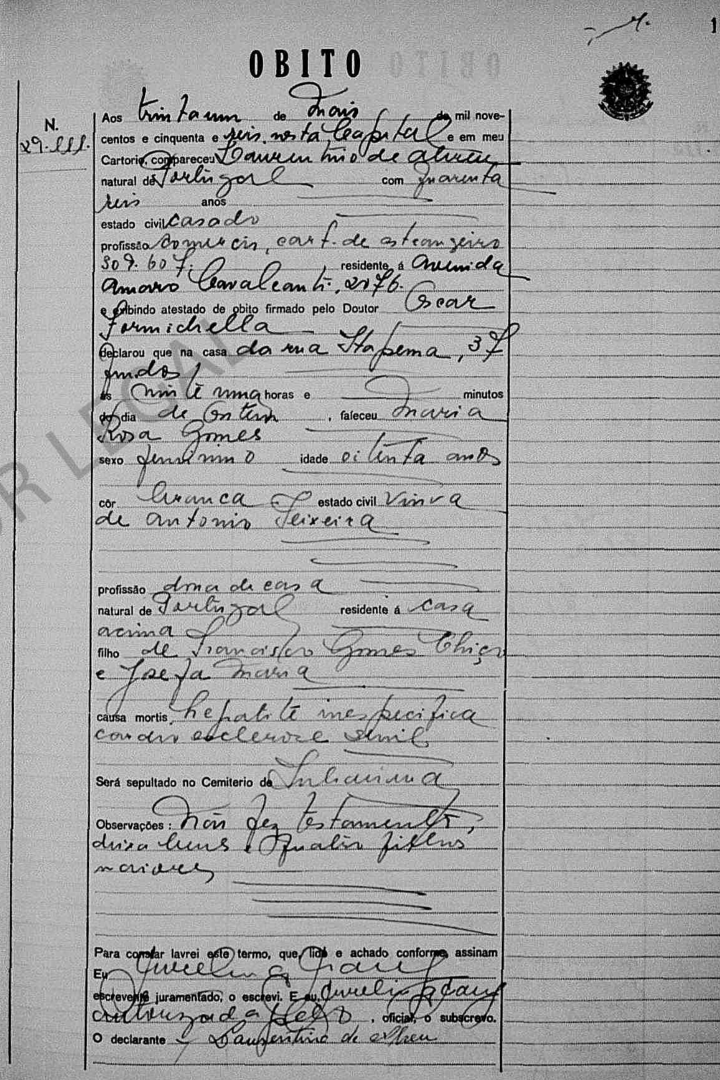 1
OBITO
N.
29.111.
Aos trinta um de Maio de mil nove-
centos e cinquenta e seis, nesta Capital e em meu
Cartorio, compareceu Laurentino de Abreu
natural de Portugal com quarenta
seis anos
estado civil casado
profissão comercio, cart. de estrangeiro
309.607. residente á Avenida
Amaro Cavalcanti, 2076.
e exibindo atestado de obito firmado pelo Doutor Oscar
Formichella
declarou que na casa da rua Itapema, 37
fundos
ás vinte uma horas e minutos
do dia de ontem, faleceu Maria
Rosa Gomes
sexo feminino idade oitenta anos
côr branca estado civil viuva
de Antonio Teixeira
profissão dona de casa
natural de Portugal residente á casa
acima
filho de Francisco Gomes
e Josefa Maria
causa mortis, hepatite inespecifica
esclerose senil
Será sepultado no Cemiterio de Inhauma
Observações: Não fez testamento,
deixa bens e quatro filhos
maiores
Para constar lavrei este termo, que, lido e achado conforme, assinam
Eu
escrevente juramentado, o escrevi. E eu,
autorizada pelo, oficial, o subscrevo.
O declarante Laurentino de Abreu
OR LEGAL